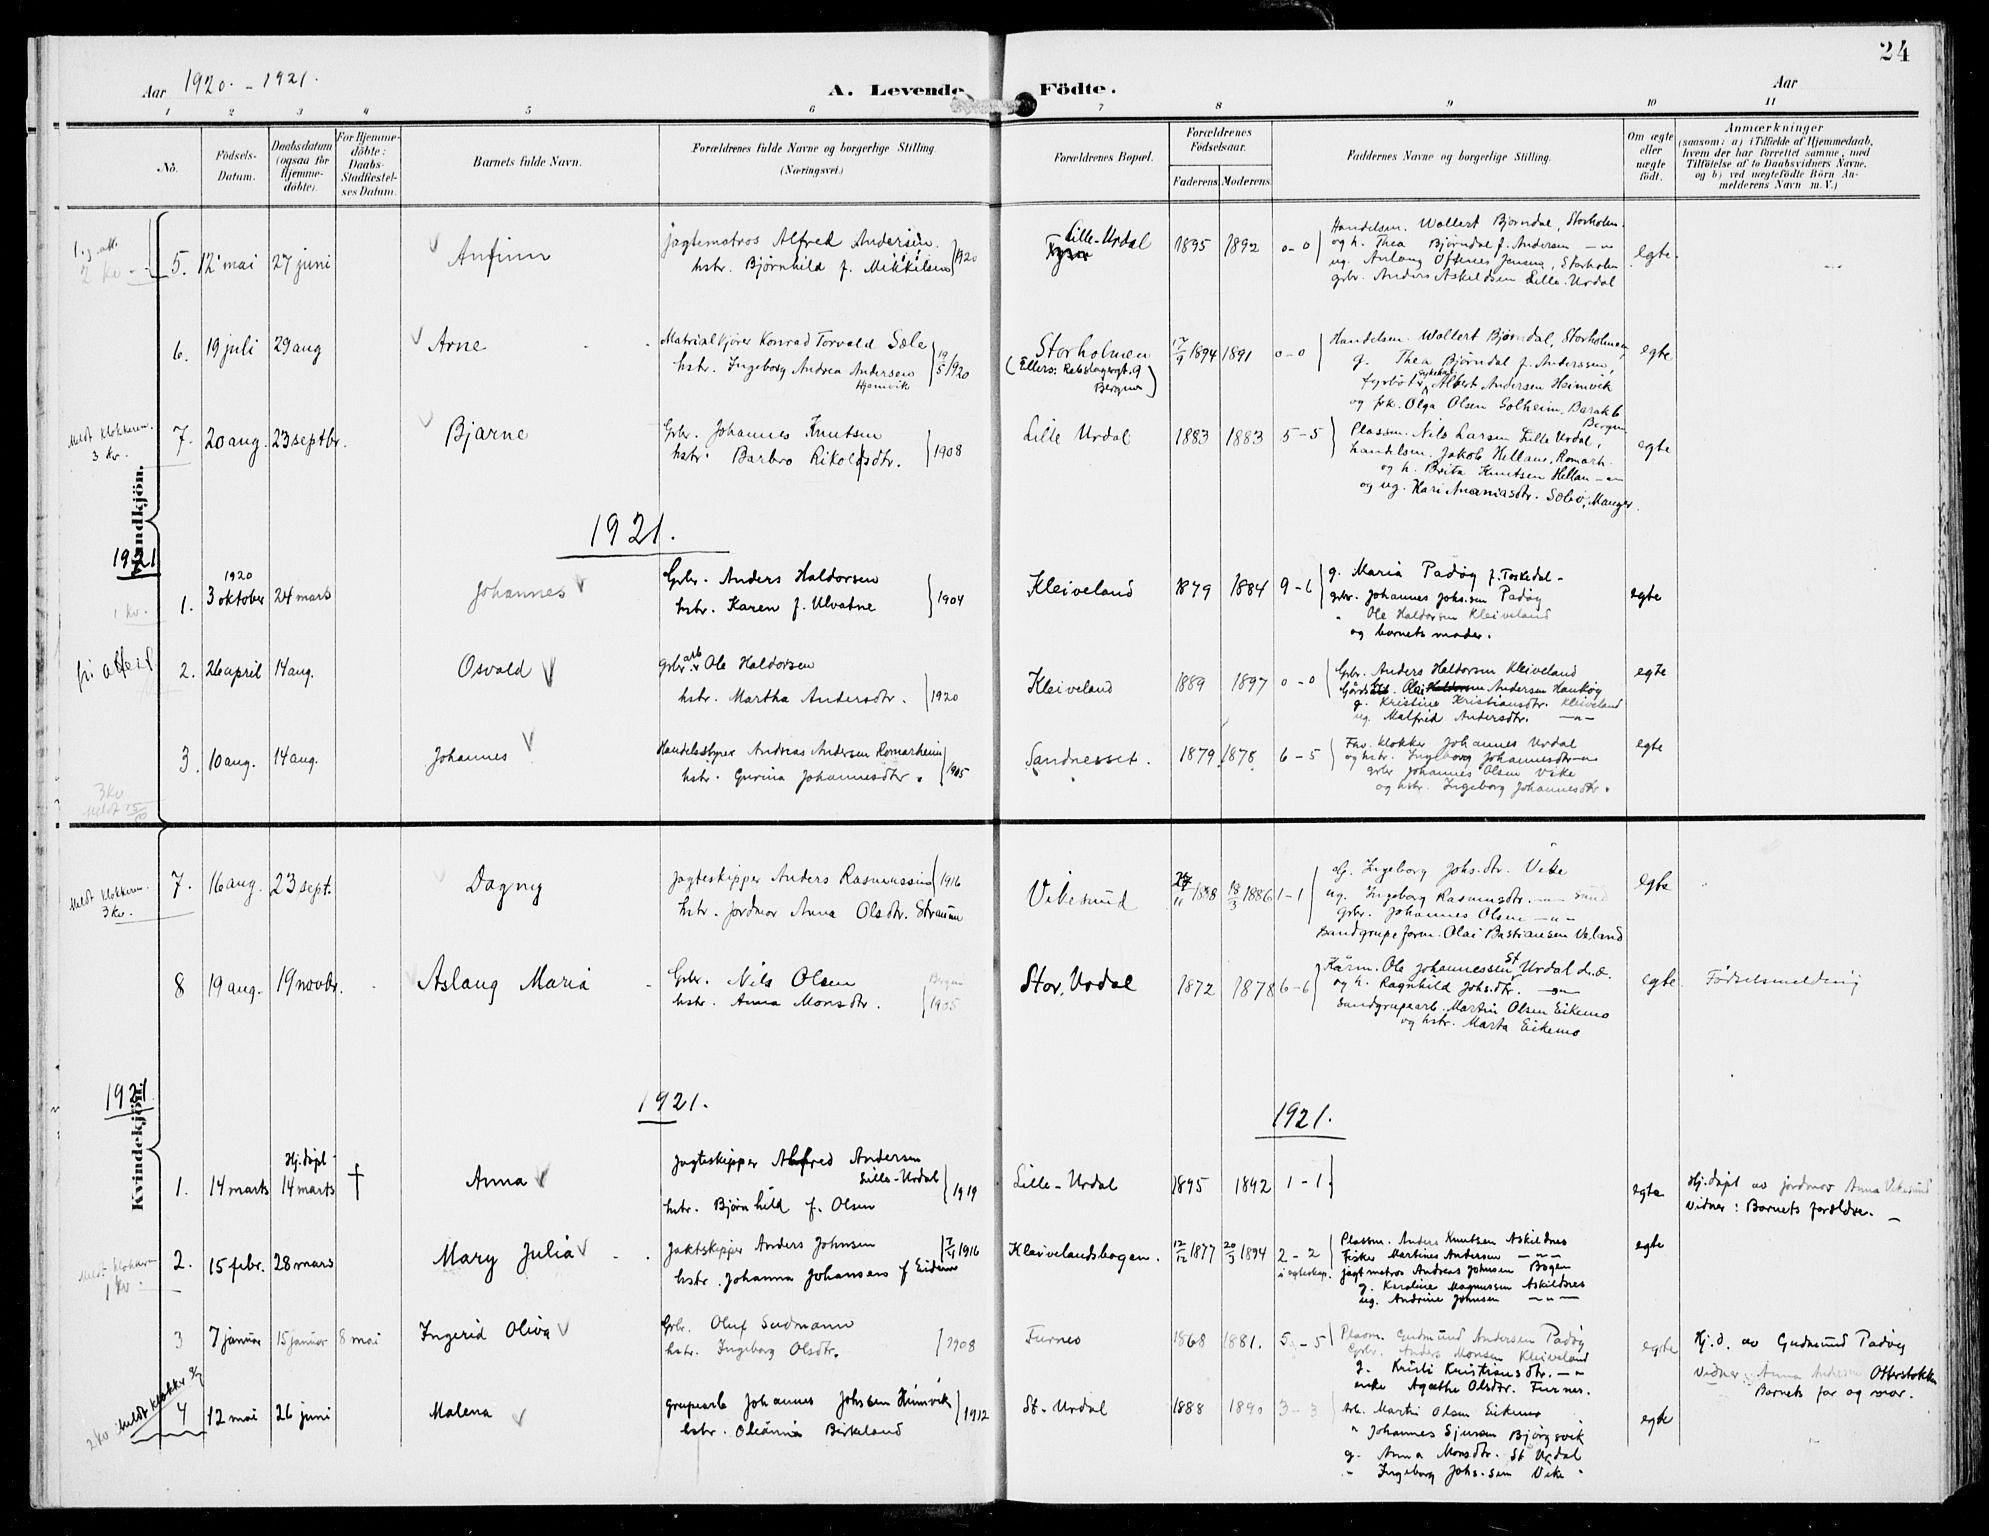 24
Aar 1920. - 1921.
A. Levende Födte.
Aar
1 2 3 4 5 6 7 8 9 10 11
No.
Födsels-Datum.
Daabsdatum (ogsaa for Hjemme-döbte).
For Hjemme-döbte: Daabs-Stadfæstel-ses Datum.
Barnets fulde Navn.
Forældrenes fulde Navne og borgerlige Stilling. (Næringsvei.)
Forældrenes Bopæl.
Forældrenes Födselsaar.
Faderens. Moderens.
Faddernes Navne og borgerlige Stilling.
Om ægte eller uægte födt.
Anmærkninger
(saasom: a) i Tilfælde af Hjemmedaab, hvem der har forrettet samme, med Tilföielse af to Daabsvidners Navne, og b) ved uægtefödte Börn An-melderens Navn m. V.)
Mandkjön.
5. 12 mai 27 juni Anfinn
jagtematros Alfred Andersen.
hstr. Bjørnhild f. Mikkelsen 1920
Lille-Urdal
1895 1892 0-0
Handelsm. Wollert Bjørndal, Storholm.
og h. Thea Bjørndal f. Andersen
ug. Jensen, Storholm
grbr. Anders Askeldsen Lille-Urdal
egte.
6. 19 juli 29 aug Arne
Matrialkjører Konrad Torvald Sæle
hstr. Ingeborg Andrea Andersen
Hjemvik
19/5 1920
Storholmen
Bergen
17/9 1894 1891 0-0
Handelsm. Wollert Bjørndal, Storholmen,
g. Thea Bjørndal f. Anderssen,
Albert Andersen Heimvik
og frk. Olga Olsen Solheim, Barak 6
Bergen
egte
Meldt klokkeren.
3 kr.
7. 20 aug. 23 septbr. Bjarne
Grbr. Johannes Knutsen
hstr. Barbro Rikoldsdtr. 1908
Lille Urdal
1883 1883 5-5
Plassm. Nils Larsen Lille Urdal,
handelsm. Jakob Hellan, Romarh.
og h. Brita Knutsen Hellan
og ug. Kari Ananiasdtr. Sæbø, Manger.
egte
1921.
1921
1920
1 kr.
1. 3 oktober 24 mars Johannes
Grbr. Anders Haldorsen
hstr. Karen f. Ulvatne 1904
Kleiveland
1879 1884 9-6
g. Maria Padøy f. Toskedal-
grbr. Johannes Johs.sen Padøy
" Ole Haldorsen Kleiveland
og barnets moder.
egte
2. 26 april 14 aug. Osvald
grbr. arb. Ole Haldorsen
hstr. Martha Andersdtr. 1920
Kleiveland
1889 1897 0-0
Grbr. Anders Haldorsen Kleiveland
Andersen
g. Kristine Kristiansdtr. Kleiveland
ug. Malfrid Andersdtr.
egte
3. 10 aug. 14 aug. Johannes
Handelsstyrer Andreas Andersen Romarheim
hstr. Gurina Johannesdtr. 1905
Sandnesset.
1879 1878 6-5
Fhv. klokker Johannes Urdal
og hstr. Ingeborg Johannesdtr
grbr Johannes Olsen Vike
og hstr. Ingeborg Johannesdtr.
egte
3 kr
Kvindekjön.
Meldt klokkeren.
3 kr.
7. 16 aug. 23 sept. Dagny
Jagteskipper Anders Rasmussen 1916
hstr. jordmor Anna Olsdtr. Straume
Vikesund
18/3 1886 1-1
g. Ingeborg Johs.dtr. Vike
ug. Ingeborg Rasmusdtr. Sund
grbr. Johannes Olsen
Sandgrupeform. Olai Bastiansen Veland
egte
8 19 aug. 19 novbr. Aslaug Maria
Grbr. Nils Olsen
hstr. Anna Monsdtr. 1905
Bergen
Stor, Urdal
1872 1878 6-6
Kårm. Ole Johannessen St Urdal d.æ.
og h. Ragnhild Johs.dtr.
Sandgrupearb. Martin Olsen Eikemo
og hstr. Marta Eikemo
egte
Fødselsmelding
1921
1921.
1921.
1. 14 marts Hj.døpt 14 marts † Anna
Jagteskipper Alfred Andersen
Lille-Urdal
hstr. Bjørnhild f. Olsen 1919
Lille-Urdal
1895 1892 1-1
egte
Hj.døpt av jordmor Anna Vikesund
Vidner: Barnets forældre.
Meldt klokkeren
1 kr.
2. 15 febr. 28 mars Mary Julia
Jaktskipper Anders Johnsen
hstr. Johanna Johansens f Eidem 1916
Kleivelandsbogen.
12/12 1877 20/3 1894 2-2
i egteskap.
Plassm. Anders Knutsen Askildsnes
Fisker Martines Andersen
jagtmatros Andreas Johnsen Bogen
g. Karoline Magnussen Askildsnes
ug. Andrine Johnsen
egte
3 7 januar 15 januar 8 mai Ingerid Oliva
Grbr. Oluf Sudmann
hstr. Ingeborg Olsdtr. 1908
Furnes
1868 1881. 5-5
Plasm. Gudmund Andersen Padøy
Grbr. Anders Monsen Kleiveland
g. Kristi Kristiansdtr.
enke Agathe Olsdtr. Furnes.
egte
Hj.d. av Gudmund Padøy
Vidner: Anna Andersen Otterstokken
Barnets far og mor.
2 kr Meldt klokker
4 12 mai 26 juni Malena
grupearb Johannes Johssen Heimvik
hstr. Oleanna Birkeland 1912
St. Urdal
1888 1890 3-3
Arb. Martin Olsen Eikemo
" Johannes Sjursen Bjørgsvik
g. Anna Monsdtr. St Urdal
" Ingeborg Johs.sen Vike
egte